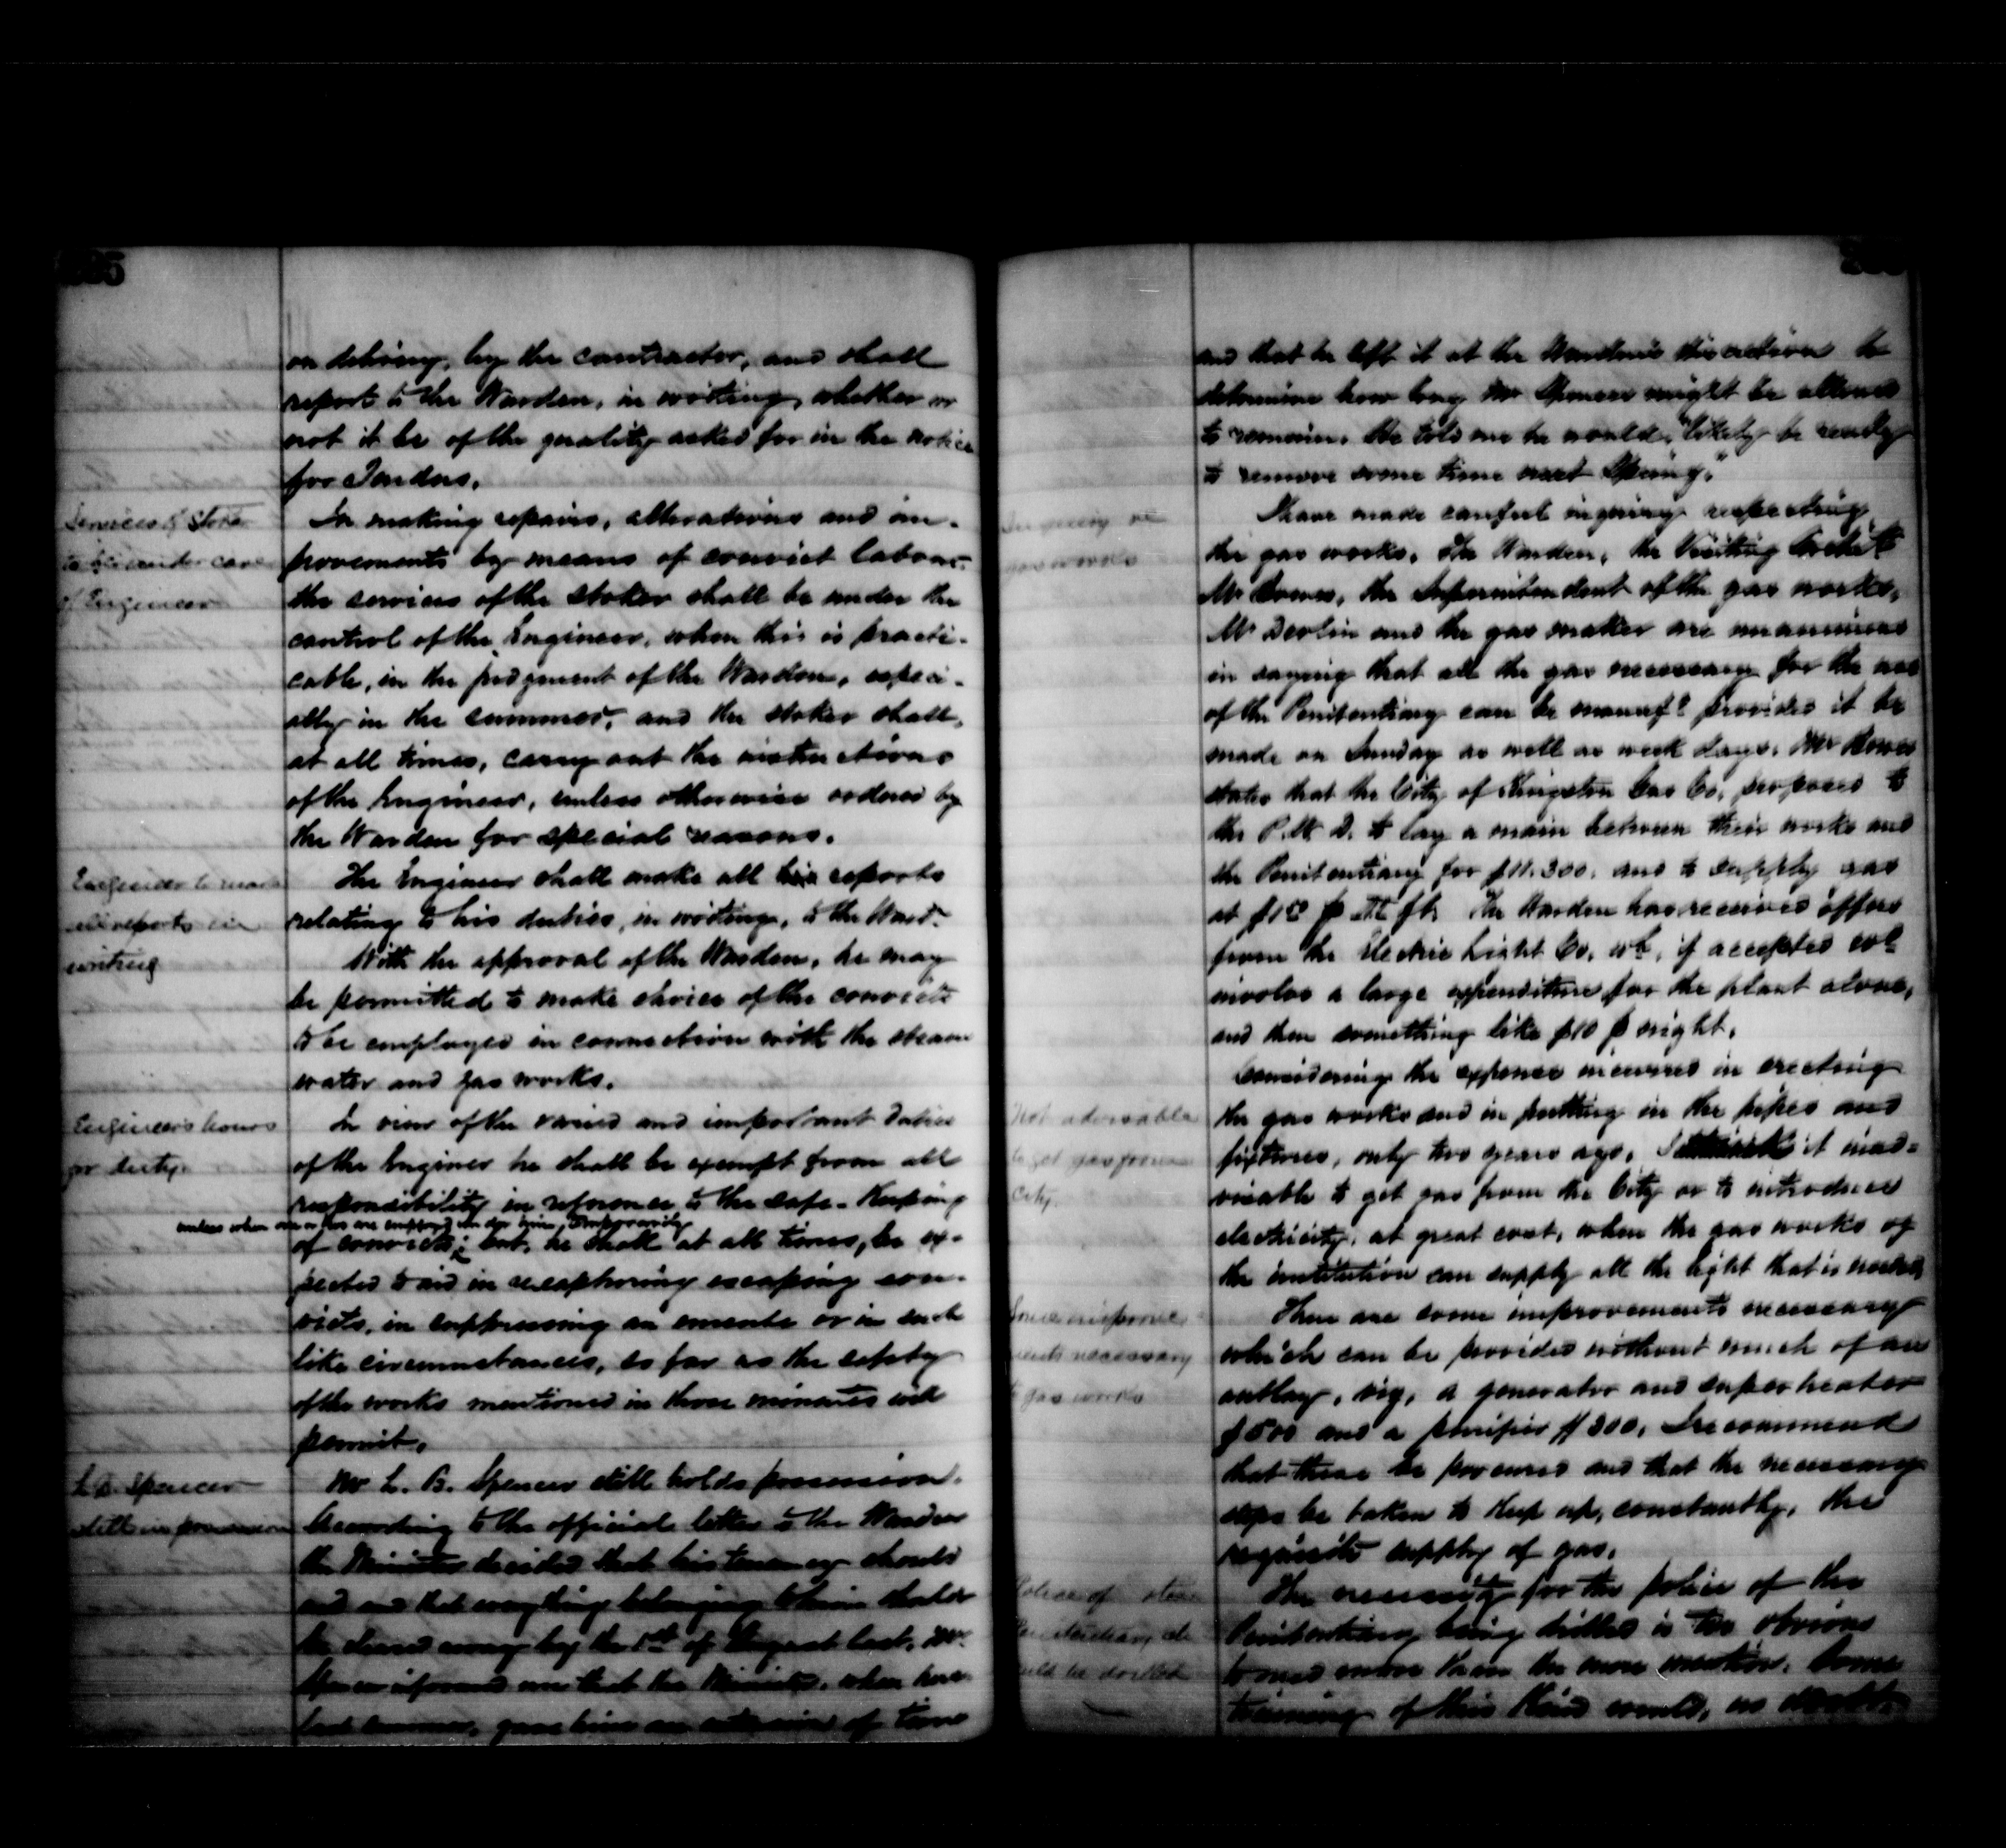 on delivery, by the contractor, and shall
report to the Warden, in writing, whether or
not it be of the quality asked for in the notice
for Tenders.
Services of Stoker
to be under care
of Engineer
In making repairs, alterations and im-
provements by means of convict labour-
the services of the stoker shall be under the
control of the Engineer, when this is practi-
cable, in the judgment of the Warden, especi-
ally in the summer, and the stoker shall,
at all times, carry out the instructions
of the Engineer, unless otherwise ordered by
the Warden for special reasons.
Engineer to make
all reports in
writing
The Engineer shall make all his reports
relating to his duties, in writing, to the Ward-
With the approval of the Warden, he may
be permitted to make choice of the convicts
to be employed in connection with the steam
water and gas works.
Engineer's hours
for duty.
In view of the varied and important duties
of the Engineer he shall be exempt from all
responsibility in reference to the safe-keeping
unless when one or two are employed under him, temporarily
of convicts; but, he shall at all times, be ex-
pected to aid in recapturing escaping con-
victs, in suppressing an emeute or in such
like circumstances, so far as the safety
of the works mentioned in these minutes will
permit.
L. B. Spencer
still in possession
Mr L. B. Spencer still holds possession.
According to the official letter to the Warden
the Minister decided that his tenancy should
end and that everything belonging to him should
be cleared away by the 1st of August last, Mr
Spencer informed me that the Minister, when here
last summer, gave him an extension of time
and that he left it at the Warden's discretion to
determine how long Mr Spencer might be allowed
to remain. He told me he would, "likely be ready
to remove some time next Spring."
Inquiry re
gas works
I have made careful inquiry respecting
the gas works. The Warden, the Visiting Archit
Mr Bowes, the Superintendent of the gas works,
Mr Devlin and the gas maker are unanimous
in saying that all the gas necessary for the use
of the Penitentiary can be manufd provided it be
made on Sunday as well as week days. Mr Bowes
states that the City of Kingston Gas Co. proposed to
the P.W.D. to lay a main between their works and
the Penitentiary for $11.300. and to supply gas
at ft. The Warden has received offers
from the Electric Light Co. wh, if accepted wd
involve a large expenditure for the plant alone,
and then something like $10 p night.
Not advisable
to get gas from
City.
Considering the expense incurred in erecting
the gas works and in putting in the pipes and
fixtures, only two years ago, I think it inad-
visable to get gas from the City or to introduce
electricity, at great cost, when the gas works of
the institution can supply all the light that is needed.
Some improve-
ments necessary
to gas works
There are some improvements necessary
which can be provided without much of an
outlay, viz, a generator and superheater
$500 and a purifier $300, I recommend
that these be procured and that the necessary
steps be taken to keep up, constantly, the
requisite supply of gas.
Police of
Penitentiary
be drilled
The necessity for the police of the
Penitentiary being drilled is too obvious
to need more than the mere mention. Some
training of this kind would, no doubt,